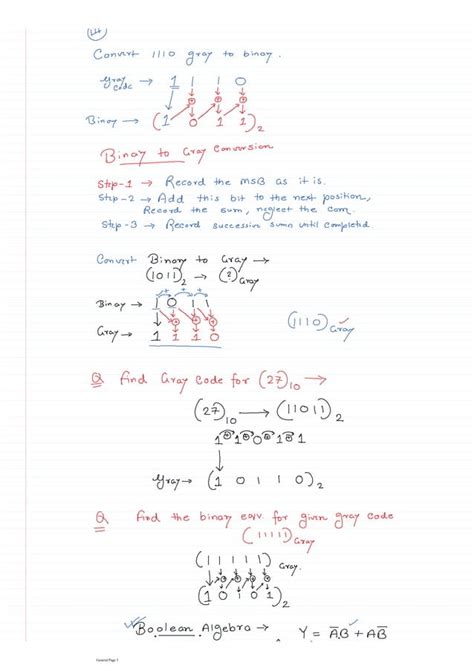 Convert 1110 gray to binary.
Gray code → 1 1 1 0
Binary → (1 0 1 1)2
Binay to Gray Conversion
Step-1 → Record the MSB as it is.
Step-2 → Add this bit to the next position,
Record the sum, neglect the carry.
Step-3 → Record successive sum until completed.
Convert Binary to Gray →
(1011)2 → (?)Gray
Binary → 1 0 1 1
+ + +
Gray → 1 1 1 0
(1110)Gray ✓
Q Find Gray Code for (27)10 →
(27)10 → (11011)2
1⊕1⊕0⊕1⊕1
Gray → (1 0 1 1 0)2
Q Find the binary eqv. for given gray code
(11111)Gray
(1 1 1 1 1)Gray.
(1 0 1 0 1)2
Boolean Algebra → Y = A̅B + AB̅
General Page 1